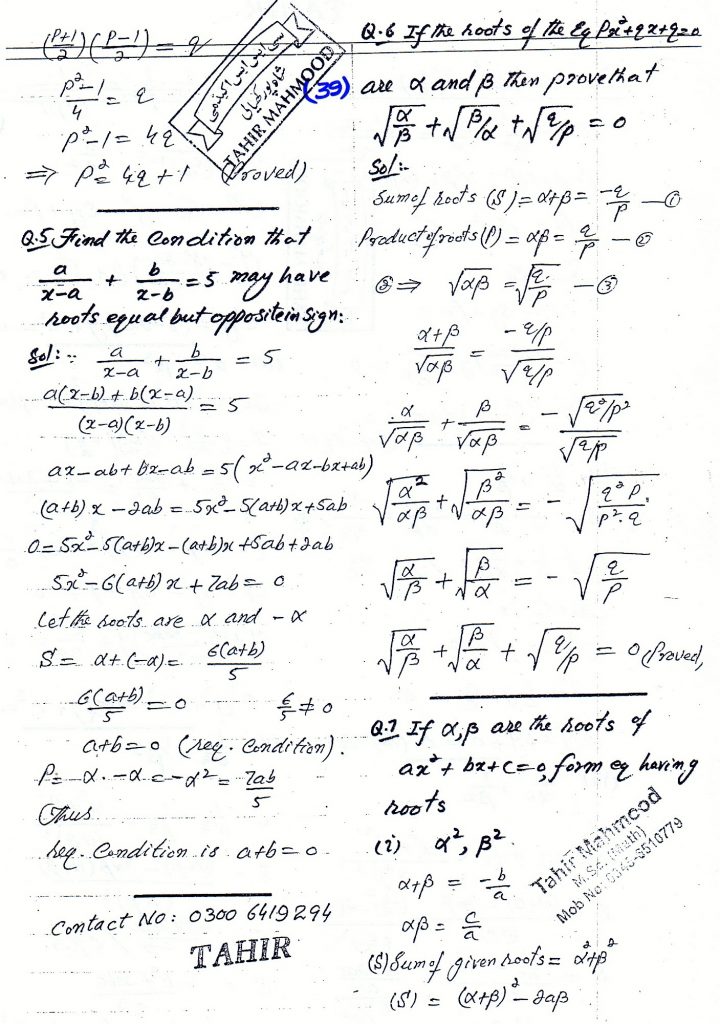 (P+1/2)(P-1/2) = q
P²-1/4 = q
P²-1 = 4q
⇒ P² = 4q+1 (Proved)
TAHIR MAHMOOD
(39)
Q.5 Find the Condition that
a/x-a + b/x-b = 5 may have
roots equal but opposite in sign:
Sol:- a/x-a + b/x-b = 5
a(x-b) + b(x-a)/(x-a)(x-b) = 5
ax-ab+bx-ab = 5(x²-ax-bx+ab)
(a+b)x-2ab = 5x²-5(a+b)x+5ab
0 = 5x²-5(a+b)x-(a+b)x+5ab+2ab
5x²-6(a+b)x+7ab = 0
Let the roots are α and -α
S = α+(-α) = 6(a+b)/5
6(a+b)/5 = 0 6/5 ≠ 0
a+b = 0 (req. Condition).
P = α.-α = -α² = 7ab/5
Thus
req. Condition is a+b = 0
Contact No: 0300 6419294
TAHIR
Q.6 If the roots of the Eq Px²+qx+q=0
are α and β then prove that
√α/β + √β/α + √q/p = 0
Sol:-
Sum of roots (S) = α+β = -q/p —①
Product of roots (P) = αβ = q/p —②
② ⇒ √αβ = √q/p —③
α+β/√αβ = -q/p/√q/p
α/√αβ + β/√αβ = -√q²/p²/√q/p
√α²/αβ + √β²/αβ = -√q²p/p².q
√α/β + √β/α = -√q/p
√α/β + √β/α + √q/p = 0 (Proved)
Q.7 If α,β are the roots of
ax²+bx+c=0, form eq having
roots
(i) α², β²
α+β = -b/a
αβ = c/a
(S) Sum of given roots = α²+β²
(S) = (α+β)²-2αβ
Tahir Mahmood
M.Sc. (Math)